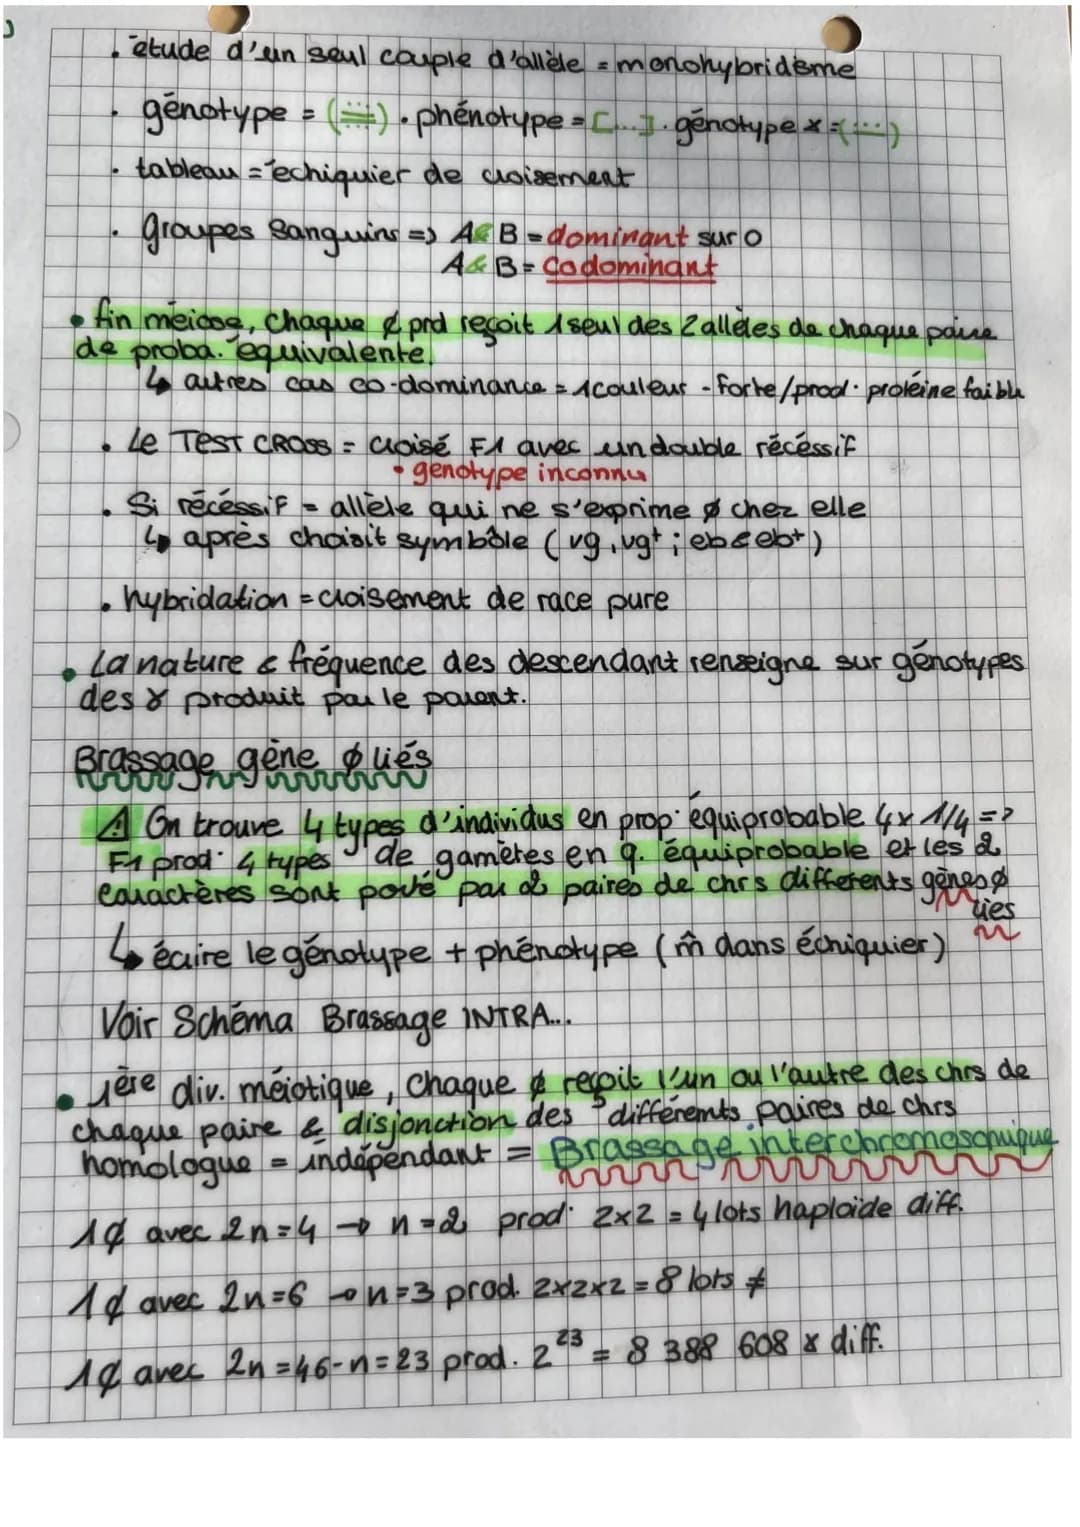 . étude d'un seul couple d'allèle = monohybridême
. génotype = (⁝⁝⁝) . phénotype = [...] . génotype ɣ = (...)
. tableau = échiquier de croisement
. groupes sanguins => A & B = dominant sur O
A & B = codominant
• fin méiose, chaque ¢ prd reçoit 1 seul des 2 allèles de chaque paire
de proba. équivalente.
↳ autres cas co-dominance = 1couleur - forte/prod° protéine faible
. Le TEST CROSS = croisé F1 avec un double récéssif
• génotype inconnu
. Si récéssif = allèle qui ne s'exprime ∅ chez elle
↳ après choisit symbôle ( vg, vg+ ; eb & eb+ )
. hybridation = croisement de race pure
• La nature & fréquence des descendant renseigne sur génotypes
des ɣ produit par le parent.
Brassage gène ∅ liés
⚠ On trouve 4 types d'individus en prop° équiprobable 4 x 1/4 =>
F1 prod° 4 types de gamètes en q. équiprobable et les 2
caractères sont porté par 2 paires de chrs différents gènes ∅
liés
↳ écrire le génotype + phénotype ( m̂ dans échiquier )
Voir Schéma Brassage INTRA...
• 1ère div. méiotique, chaque ¢ reçoit l'un ou l'autre des chrs de
chaque paire & disjonction des différents paires de chrs
homologue = indépendant = Brassage interchromosomique
1¢ avec 2n=4 → n=2 prod° 2x2 = 4 lots haploïde diff.
1¢ avec 2n=6 → n=3 prod. 2x2x2 = 8 lots ≠
1¢ avec 2n=46 - n=23 prod. 2²³ = 8 388 608 ɣ diff.